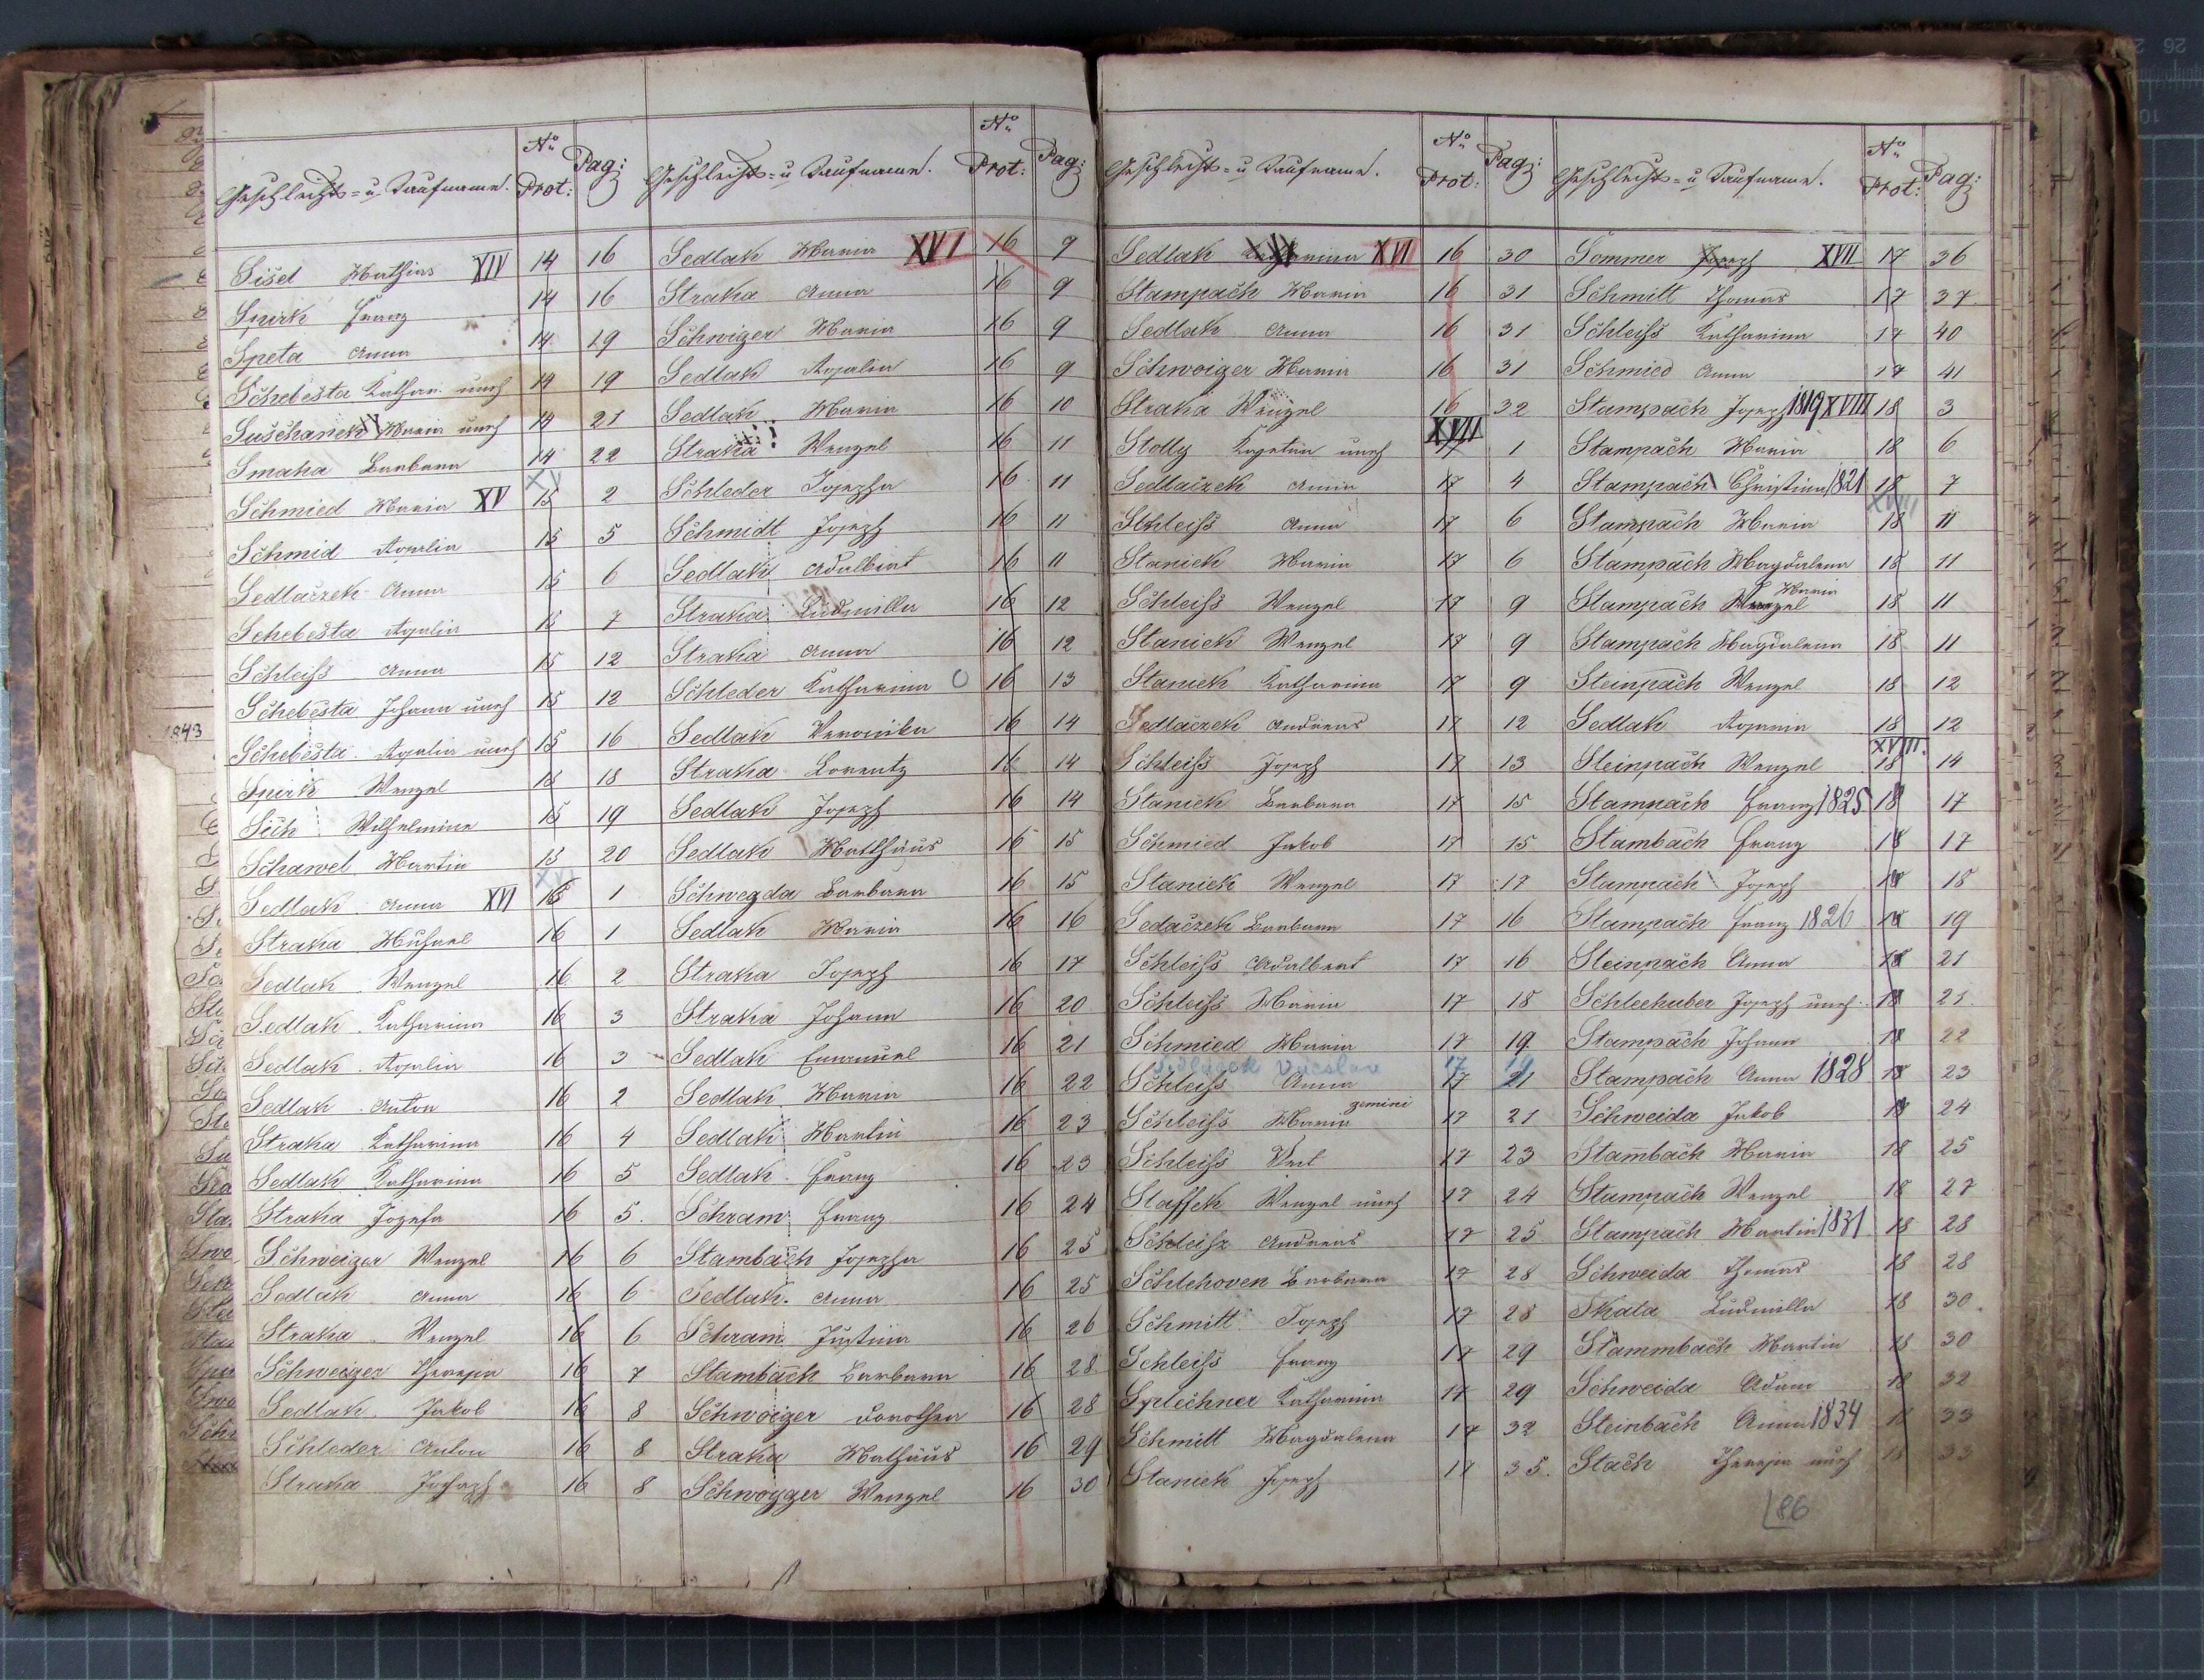 Geschlechts- u Taufname. No Prot: Pag:
Sisel Mathias XIV 14 16
Spirk Franz 14 16
Speta Anna 14 19
Schebesta Kathar. uneh 14 19
Suschanek Maria uneh 14 21
Smaha Barbara 14 22
Schmied Maria XV 15 2
Schmid Rosalia 15 5
Sedlaczek Anna 15 6
Schebesta Rosalia 15 7
Schleiss Anna 15 12
Schebesta Johann uneh 15 12
Schebesta Rosalia uneh 15 16
Spirk Wenzel 15 18
Sich Wilhelmine 15 19
Scharvel Martin 15 20
Sedlak Anna XVI 16 1
Straka Michael 16 1
Sedlak Wenzel 16 2
Sedlak Katharina 16 3
Sedlak Rosalia 16 3
Sedlak Anton 16 2
Straka Katharina 16 4
Sedlak Katharina 16 5
Straka Josefa 16 5.
Schweiger Wenzel 16 6
Sedlak Anna 16 6
Straka Wenzel 16 6
Schweiger Theresia 16 7
Sedlak Jakob 16 8
Schleder Anton 16 8
Straka Joseph 16 8
Geschlechts- u Taufname. No Prot: Pag:
Sedlak Maria XVI 16 9
Straka Anna 16 9
Schwiger Maria 16 9
Sedlak Rosalia 16 9
Sedlak Maria 16 10
Straka Wenzel 16 11
Schleder Josepha 16 11
Schmidt Joseph 16 11
Sedlak Adalbert 16 11
Straka Ludmilla 16 12
Straka Anna 16 12
Schleder Katharina 16 13
Sedlak Veronika 16 14
Straka Lorentz 16 14
Sedlak Joseph 16 14
Sedlak Matthäus 16 15
Schwegda Barbara 16 15
Sedlak Maria 16 16
Straka Joseph 16 17
Straka Johann 16 20
Sedlak Emanuel 16 21
Sedlak Maria 16 22
Sedlak Martin 16 23
Sedlak Franz 16 23
Schram Franz 16 24
Stambach Josepha 16 25
Sedlak Anna 16 25
Schram Justina 16 26
Stambach Barbara 16 28
Schwoiger Dorothea 16 28
Straka Mathäus 16 29
Schwogger Wenzel 16 30
Geschlechts- u Taufname. No Prot: Pag:
Sedlak XVI 16 30
Stampach Maria 16 31
Sedlak Anna 16 31
Schwoiger Maria 16 31
Straka Wenzel 16 32
Stolly Kajetan uneh XVII 1
Sedlaczek Anna 17 4
Schleiss Anna 17 6
Staniek Maria 17 6
Schleiss Wenzel 17 9
Staniek Wenzel 17 9
Staniek Katharina 17 9
Sedlaczek Andreas 17 12
Schleiss Joseph 17 13
Staniek Barbara 17 15
Schmied Jakob 17 15
Staniek Wenzel 17 17
Sedaczek Barbara 17 16
Schleiss Adalbert 17 16
Schleiss Maria 17 18
Schmied Maria 17 19
Sedlacek Vácslav 17 19
Schleiss Anna 17 21
Schleiss Maria gemini 17 21
Schleiss Veit 17 23
Staffek Wenzel uneh 17 24
Schleisz Andreas 17 25
Schlehoven Barbara 17 28
Schmitt Joseph 17 28
Schleiss Franz 17 29
Splechner Katharina 17 29
Schmitt Magdalena 17 32
Staniek Joseph 17 35.
Geschlechts- u Taufname. No Prot: Pag:
Sommer Joseph XVII 17 36
Schmitt Thomas 17 37
Schleiss Katharina 17 40
Schmied Anna 17 41
Stampach Joseph 1819 XVIII 18 3
Stampach Maria 18 6
Stampach Christina 1821 18 7
Stampach Maria 18 11
Stampach Magdalena 18 11
Stampach Wenzel Maria 18 11
Stampach Magdalena 18 11
Steinpach Wenzel 18 12
Sedlak Rosaria 18 12
Steinpach Wenzel XVIII. 18 14
Stampach Franz 1825 18 17
Stambach Franz 18 17
Stampach Joseph 18 18
Stampach Franz 1826 18 19
Steinpach Anna 18 21
Schleehuber Joseph uneh. 18 21
Stampach Johann 18 22
Stampach Anna 1828 18 23
Schweida Jakob 18 24
Stambach Maria 18 25
Stampach Wenzel 18 27
Stampach Martin 1831 18 28
Schweida Thomas 18 28
Skala Ludmilla 18 30.
Stammbach Martin 18 30
Schweida Adam 18 32
Steinbach Anna 1834 18 33
Stach Theresia uneh 18 33
86
1843